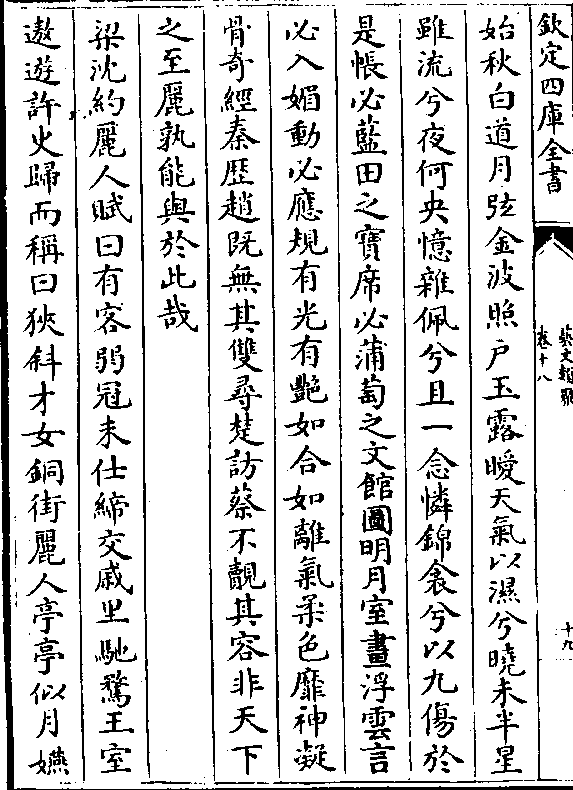 欽定四庫全書
藝文類聚
卷十八
十九
始秋白道月弦金波照戶玉露曖天氣以濕兮曉未半星
雖流兮夜何央憶雜佩兮且一念憐錦衾兮以九傷於
是帳必藍田之寶席必蒲萄之文館圖明月室畫浮雲言
必入媚動必應規有光有艷如合如離氣柔色靡神凝
骨奇經秦歷趙既無其雙尋楚訪蔡不覿其容非天下
之至麗孰能與於此哉
梁沈約麗人賦曰有客弱冠未仕締交戚里馳騖王室
遨遊許火歸而稱曰狹斜才女銅街麗人亭亭似月嬿